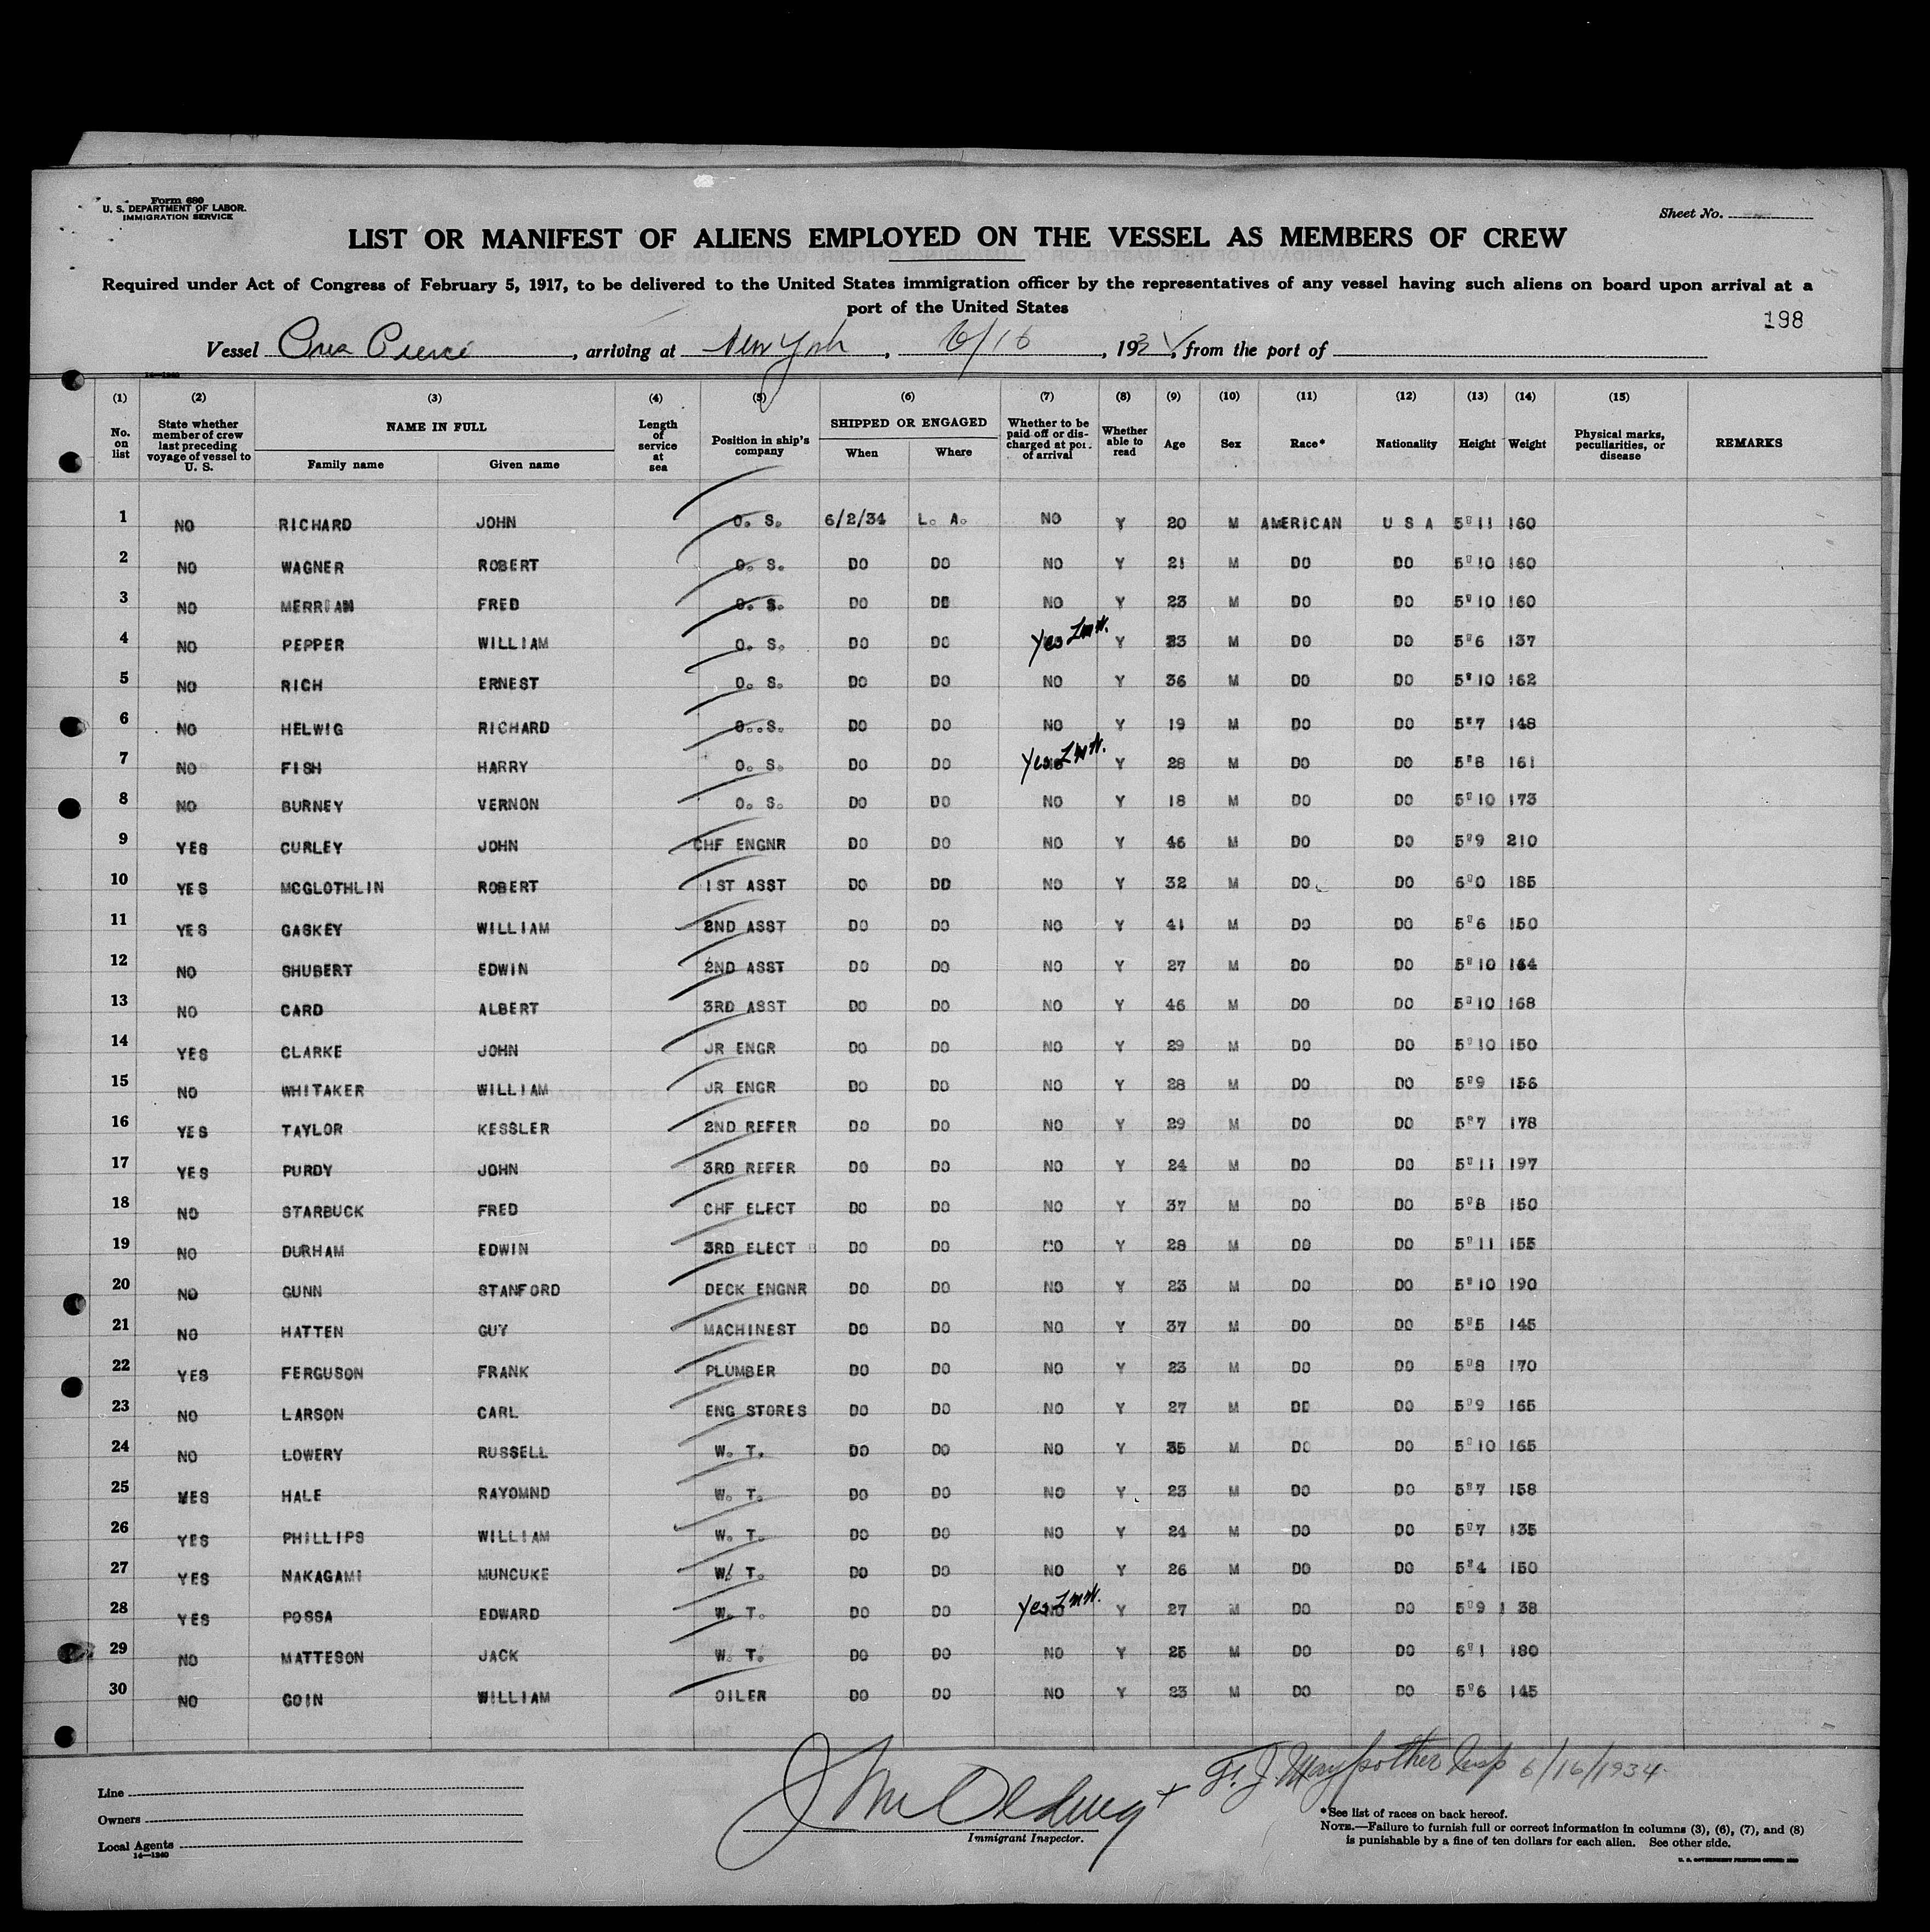 Form 680
U. S. DEPARTMENT OF LABOR.
IMMIGRATION SERVICE
Sheet No.
LIST OR MANIFEST OF ALIENS EMPLOYED ON THE VESSEL AS MEMBERS OF CREW
Required under Act of Congress of February 5, 1917, to be delivered to the United States immigration officer by the representatives of any vessel having such aliens on board upon arrival at a
port of the United States
198
Vessel Pres Pierce, arriving at New York, 6/16, 193, from the port of
14—1240
(1) (2) (3) (4) (5) (6) (7) (8) (9) (10) (11) (12) (13) (14) (15)
No. on list State whether member of crew last preceding voyage of vessel to U. S. NAME IN FULL Family name Given name Length of service at sea Position in ship's company SHIPPED OR ENGAGED When Where Whether to be paid off or discharged at port of arrival Whether able to read Age Sex Race* Nationality Height Weight Physical marks, peculiarities, or disease REMARKS
1 NO RICHARD JOHN O. S. 6/2/34 L. A. NO Y 20 M AMERICAN U S A 5"11 160
2 NO WAGNER ROBERT O. S. DO DO NO Y 21 M DO DO 5"10 160
3 NO MERRIAM FRED O. S. DO DO NO Y 23 M DO DO 5"10 160
4 NO PEPPER WILLIAM O. S. DO DO Yes LmH. Y 23 M DO DO 5"6 137
5 NO RICH ERNEST O. S. DO DO NO Y 36 M DO DO 5"10 162
6 NO HELWIG RICHARD O..S. DO DO NO Y 19 M DO DO 5"7 148
7 NO FISH HARRY O. S. DO DO Yes LmH. Y 28 M DO DO 5"8 161
8 NO BURNEY VERNON O. S. DO DO NO Y 18 M DO DO 5"10 173
9 YES CURLEY JOHN CHF ENGNR DO DO NO Y 46 M DO DO 5"9 210
10 YES MCGLOTHLIN ROBERT 1ST ASST DO DO NO Y 32 M DO DO 6"0 185
11 YES GASKEY WILLIAM 2ND ASST DO DO NO Y 41 M DO DO 5"6 150
12 NO SHUBERT EDWIN 2ND ASST DO DO NO Y 27 M DO DO 5"10 164
13 NO CARD ALBERT 3RD ASST DO DO NO Y 46 M DO DO 5"10 168
14 YES CLARKE JOHN JR ENGR DO DO NO Y 29 M DO DO 5"10 150
15 NO WHITAKER WILLIAM JR ENGR DO DO NO Y 28 M DO DO 5"9 156
16 YES TAYLOR KESSLER 2ND REFER DO DO NO Y 29 M DO DO 5"7 178
17 YES PURDY JOHN 3RD REFER DO DO NO Y 24 M DO DO 5"11 197
18 NO STARBUCK FRED CHF ELECT DO DO NO Y 37 M DO DO 5"8 150
19 NO DURHAM EDWIN 3RD ELECT DO DO NO Y 28 M DO DO 5"11 155
20 NO GUNN STANFORD DECK ENGNR DO DO NO Y 23 M DO DO 5"10 190
21 NO HATTEN GUY MACHINEST DO DO NO Y 37 M DO DO 5"5 145
22 YES FERGUSON FRANK PLUMBER DO DO NO Y 23 M DO DO 5"8 170
23 NO LARSON CARL ENG STORES DO DO NO Y 27 M DO DO 5"9 165
24 NO LOWERY RUSSELL W. T. DO DO NO Y 35 M DO DO 5"10 165
25 YES HALE RAYOMND W. T. DO DO NO Y 23 M DO DO 5"7 158
26 YES PHILLIPS WILLIAM W. T. DO DO NO Y 24 M DO DO 5"7 135
27 YES NAKAGAMI MUNCUKE W. T. DO DO NO Y 26 M DO DO 5"4 150
28 YES POSSA EDWARD W. T. DO DO Yes LmH. Y 27 M DO DO 5"9 138
29 NO MATTESON JACK W. T. DO DO NO Y 25 M DO DO 6"1 180
30 NO GOIN WILLIAM OILER DO DO NO Y 23 M DO DO 5"6 145
6/16/1934
Line
Owners
Local Agents
14—1240
Immigrant Inspector.
*See list of races on back hereof.
NOTE.—Failure to furnish full or correct information in columns (3), (6), (7), and (8)
is punishable by a fine of ten dollars for each alien. See other side.